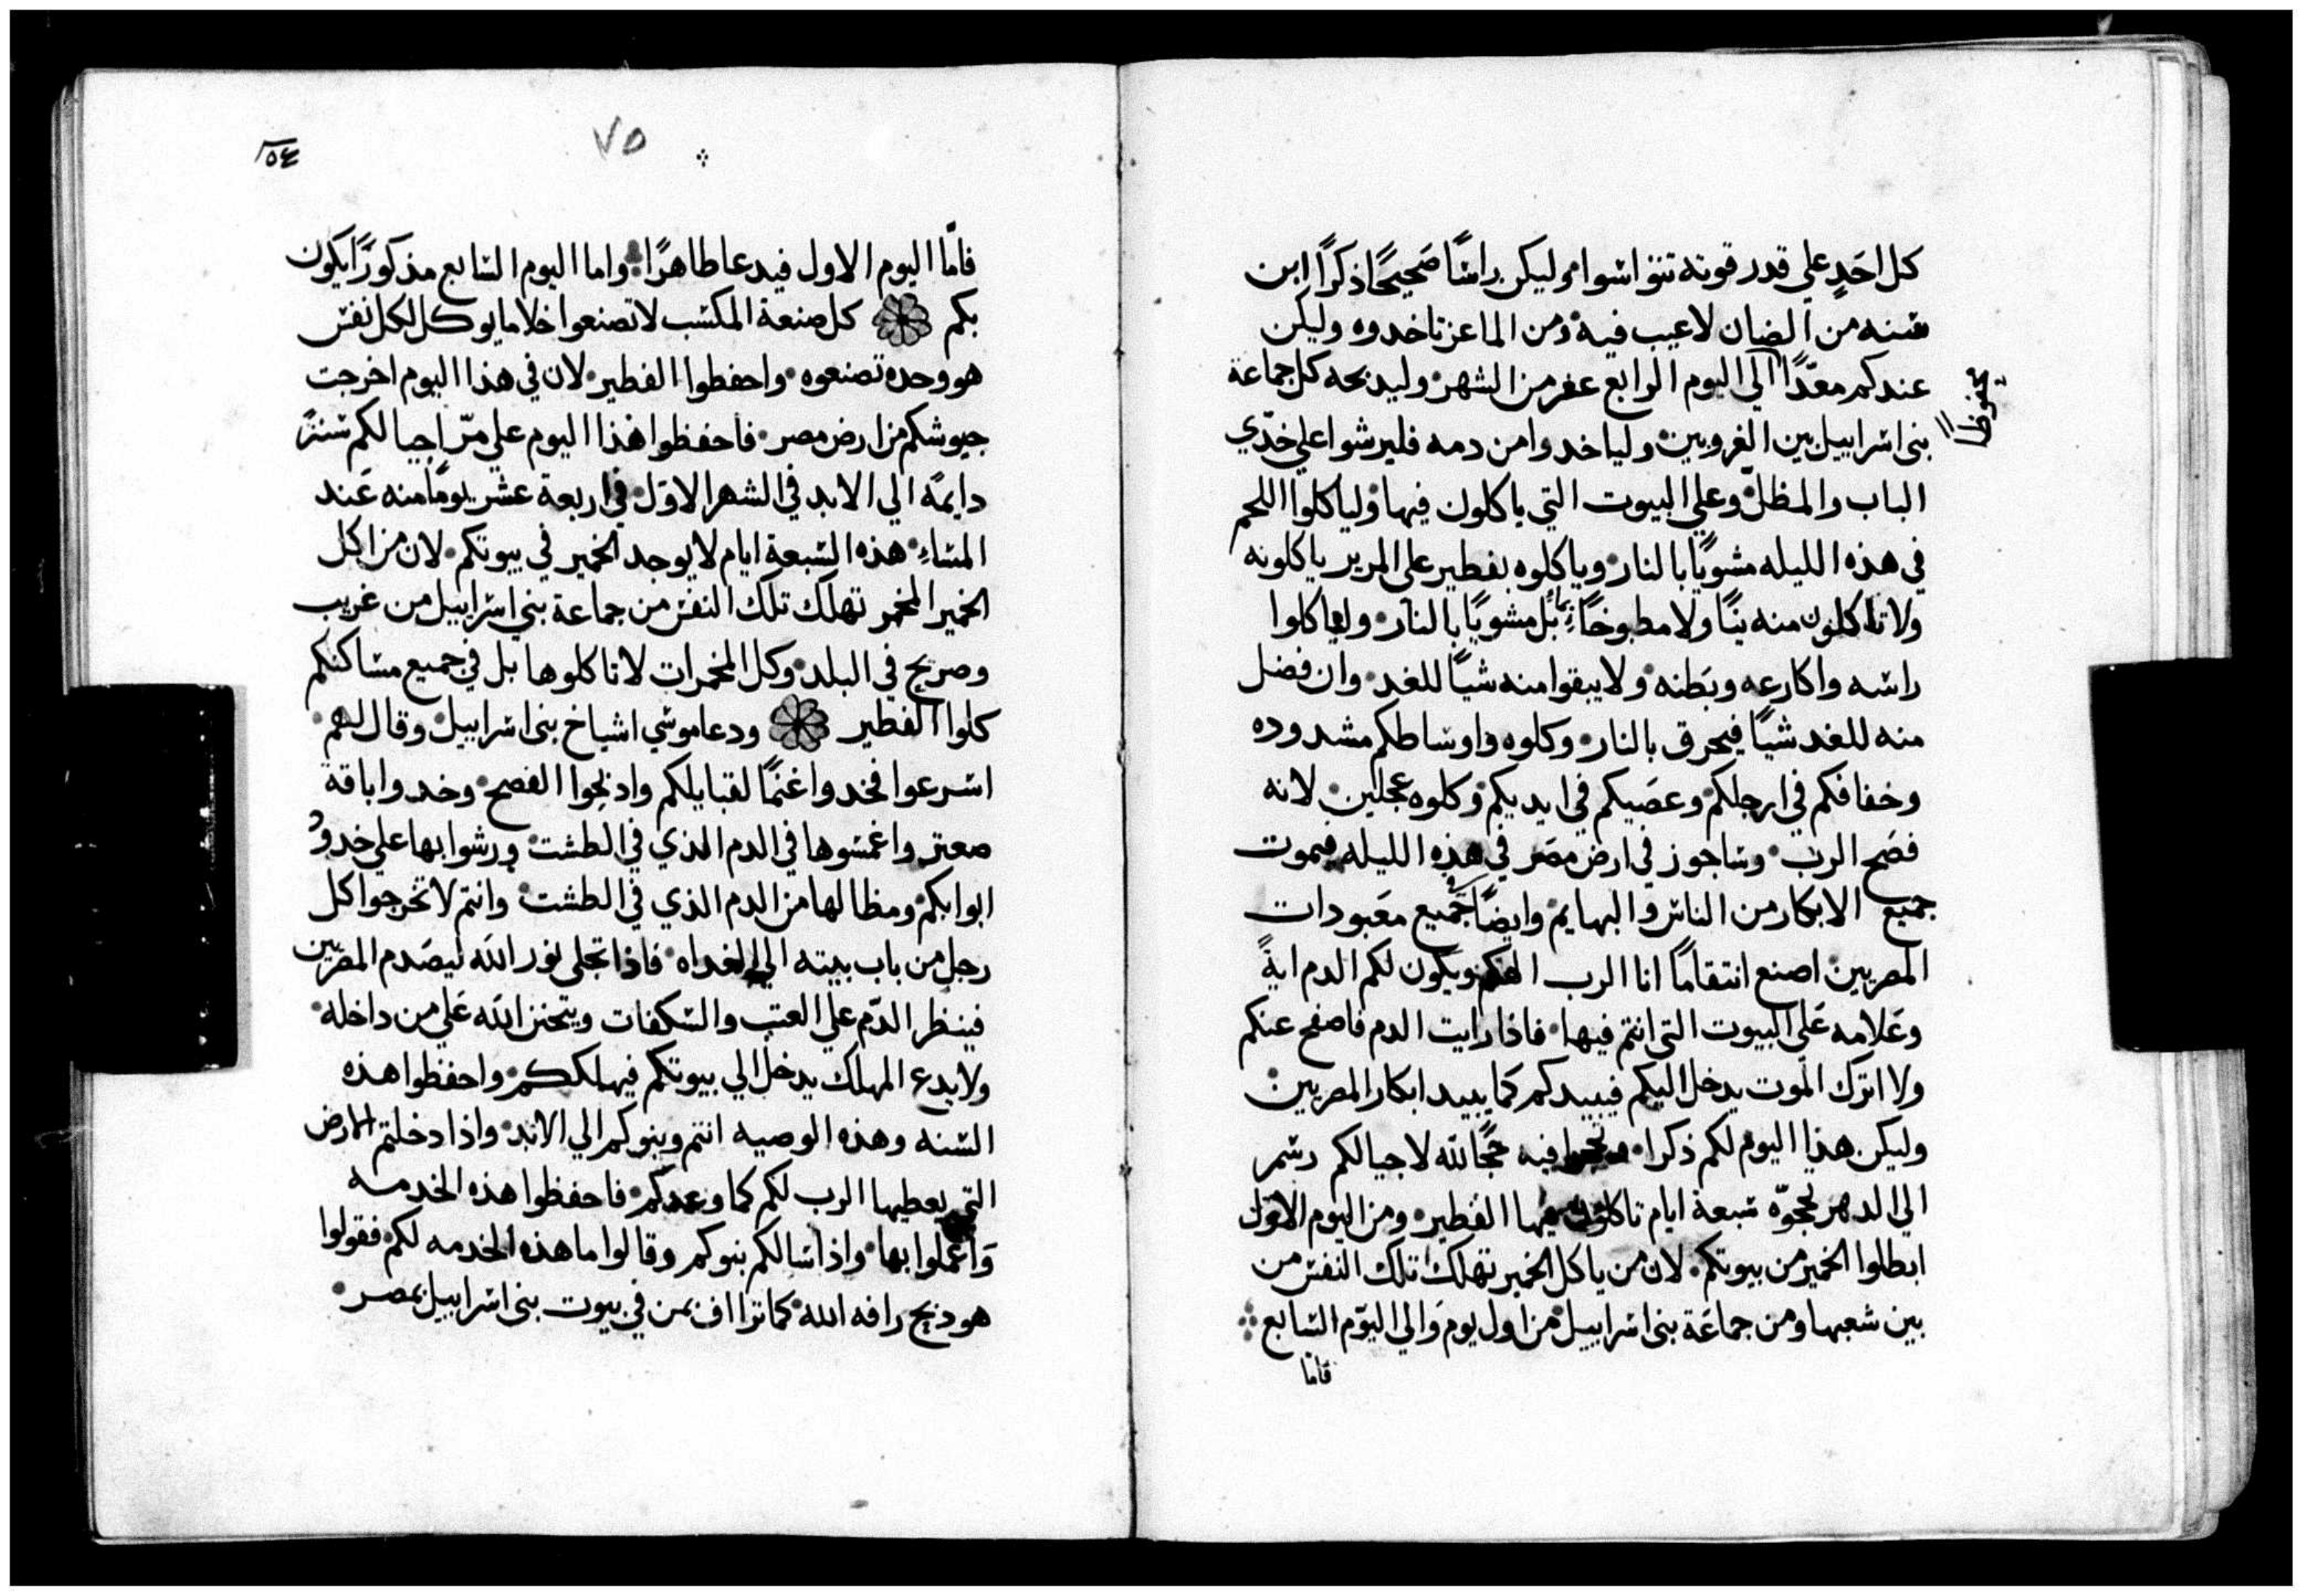 كل احَدٍ علي قدر قوته تتفرا شواه وليكن راسًا صَحيحًا ذكرًا ابن
سنه من الضان لاعيب فيه ومن الماعز تاخدوه وليكن
عندكم معدًّا الي اليوم الرابع عشر من الشهر وليدبحه كل جماعة
محفوظًا
بني اسراييل بين الغروبين ولياخدوا من دمه فليرشوا علي خدّي
الباب والمظلّ وعلي البيوت التي ياكلون فيها ولياكلوا اللحم
في هذه الليله مشويًا بالنار وياكلوه بفطير علي المرير ياكلونه
ولا تاكلون منه نيًا ولا مطبوخًا بماءٍ بل مشويًا بالنار ولياكلوا
راسه واكارعه وبَطنه ولا يبقوا منه شيًا للغد وان فضل
منه للغد شيًا فيحرق بالنار وكلوه واوساطكم مشدوده
وخفافكم في ارجلكم وعصَيكم في ايديكم وكلوه عجلين لانه
فصَح الرب وساجوز في ارض مصَر في هذه الليله فيموت
جميع الابكار من الناس والبهايم وايضًا جميع معَبودات
المصريين اصنع انتقامًا انا الرب الهكم ويكون لكم الدم ايةً
وعَلامه عَلي البيوت التي انتم فيها فاذا رايت الدم فاصفح عنكم
ولا اترك الموت يدخل اليكم فيبيدكم كما يبيد ابكار المصريين
وليكن هذا اليوم لكم ذكرا فيه حجًا لله لاجيالكم رسم
الي الدهر تحجوّه سبعة ايام تاكلون فيها الفطير ومن اليوم الاول
ابطلوا الخمير من بيوتكم لان من ياكل الخمير تهلك تلك النفس من
بين شعبها ومن جماعَة بني اسراييل من اول يوم وَالي اليوم السابع
فامّا
٥٤
٧٥
فامّا اليوم الاول فيدعا طاهرًا واما اليوم السابع مذكورًا يكون
بكم كل صنعة المكسب لا تصنعوا خلا ما يوكل لكل نفس
هو وحده تصنعوه واحفظوا الفطير لان في هذا اليوم اخرجت
جيوشكم من ارض مصر فاحفظوا هذا اليوم علي مرّ اجيالكم سنةً
دايمًه الي الابد في الشهر الاوّل في اربعة عشر يومًا منه عَند
المساءِ هذه السبعة ايام لا يوجد الخمير في بيوتكم لان من اكل
الخمير المخمر تهلك تلك النفس من جماعة بني اسراييل من غريب
وصريح في البلد وكل المخمرات لا تاكلوها بل في جميع مساكنكم
كلوا الفطير ودعا موسي اشياخ بني اسراييل وقال لهم
اسرعوا فخدوا غنمًا لقبايلكم وادبحوا الفصح وخدوا باقة
صعتر واغمسوها في الدم الذي في الطشت ورشوا بها علي خدود
ابوابكم ومظالها من الدم الذي في الطشت وانتم لا تخرجوا كل
رجل من باب بيته الي الغداه فاذا تجلى نور الله ليصَدم المصريين
فينظر الدّم علي العتب والسكفات ويتحنن الله عَلي من داخله
ولا يدع المهلك يدخل الي بيوتكم فيهلككم واحفظوا هذه
السنه وهذه الوصيه انتم وبنوكم الي الابد واذا دخلتم الارض
التي يعطيها الرب لكم كما وعدكم فاحفظوا هذه الخدمه
وَاعملوا بها واذا سالكم بنوكم وقالوا ما هذه الخدمه لكم فقولوا
هو دبيح رافه الله كما تراف بمن في بيوت بني اسراييل بمصر